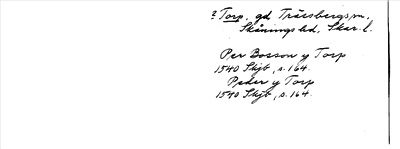 ? Torp, gd Träesbergs sn,
Skånings hd, Skar. l.
Per Bosson y Torp
1540 Skjb, s. 164.
Peder y Torp
1540 Skjb, s. 164.